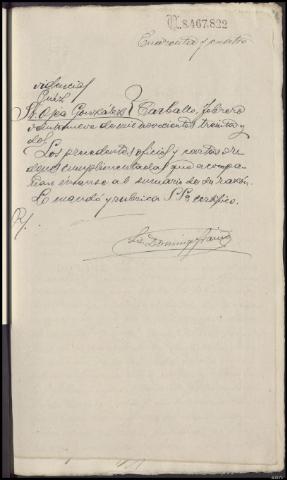 N.8.467.822
Cuarenta y cuatro
videncia
Juez
Sr. Ojea González } Carballo, febrero
veintinueve de mil novecientos treinta y
dos.
Los precedentes oficios y cartas or-
denes cumplimentadas que acompa-
ñan unanse al sumario de su razón.
Lo mandó y rubrica S.Sª certifico.
Domingo